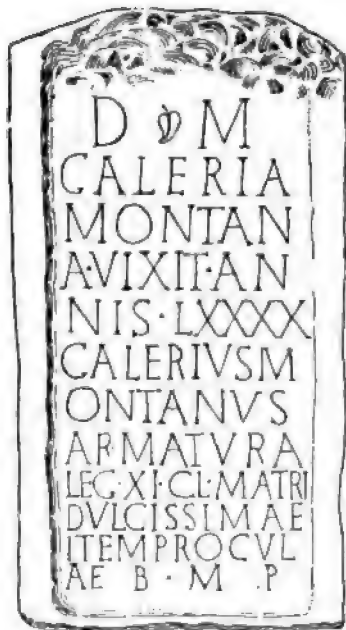 D ❦ M
CALERIA
MONTAN
A·VIXIT·AN
NIS·LXXXX
CALERIVSM
ONTANVS
AR·MATVRA
LEG·XI·CL·MATRI
DVLCISSIMAE
ITEMPROCVL
AE B·M·P